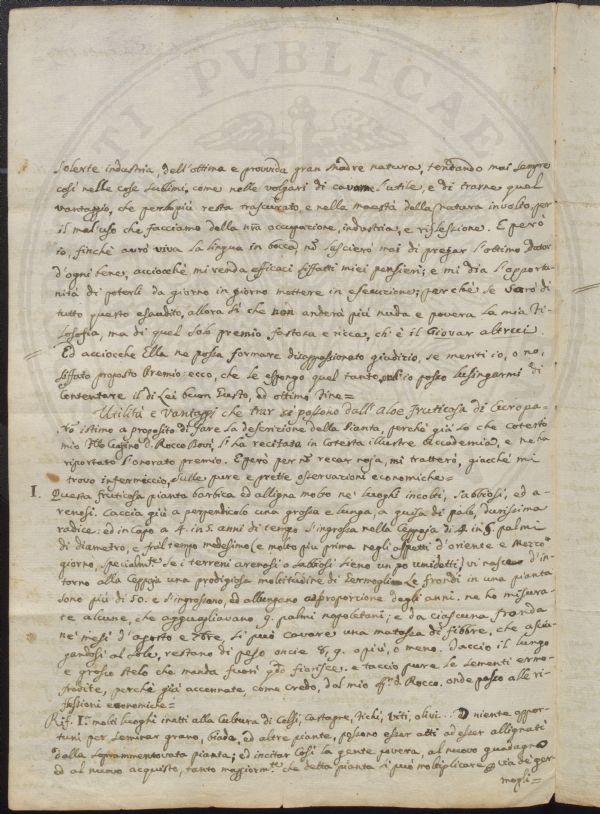 PVBLICAE
solerte industria, dell'ottima e provvida gran Madre natura, tentando mai sempre
così nelle cose sublimi, come nelle volgari di cavarne l'utile, e di trarne quel
vantaggio, che per lo più resta trascurato, e nella maestà della natura involto, per
il mal'uso che facciamo della nra occupazione, industria, e riflessione. E però
io, finchè aurò viva la lingua in bocca, nò lascierò mai di pregar l'ottimo Dator
d'ogni bene, acciocchè mi renda efficaci siffatti miei pensieri; e mi dia l'opportu-
nità di poterli da giorno in giorno mettere in esecuzione; perchè se sarò di
tutto questo esaudito, allora sì che non anderà più nuda e povera la mia Fi-
losofia, ma di quel solo premio fastosa e ricca, ch'è il Giovar altrui.
Ed acciocchè Ella ne possa formare disappassionato giudizio, se meriti io, o nò,
siffato proposto premio: ecco, che le espongo quel tanto, io posso lusingarmi di
contentare il di Lei buon Gusto, ed ottimo Fine=
Utilità e Vantaggi che trar si possono dall'aloe fruticosa di Europa-
Nò stimo a proposito di fare la descrizione della Pianta, perchè già so che cotesto
mio Cugino D. Rocco Bovi, l'ha recitata in cotesta illustre Accademia, e ne ha
riportato l'onorato premio. E però per nò recar noja, mi tratterò, giacchè mi
trovo infermiccio, sulle pure e prette osservazioni economiche=
I. Questa fruticosa pianta barbica ed alligna molto ne' luoghi incolti, sabbiosi, ed a-
renosi. Caccia giù a perpendicolo una grossa e lunga, a guisa di palo, durissima
radice: ed in capo a 4. in 5. anni di tempo s'ingrossa nella Ceppaja di 4. in 5. palmi
di diametro, e fra'l tempo medesimo (e molto più prima negli aspetti d'oriente e Mezzo
giorno, specialmte se i terreni arenosi o sabbiosi sieno un pò umidetti) vi nasce d'in-
torno alla Ceppaja una prodigiosa moltitudine di Germogli= Le frondi in una pianta
sono più di 50. e s'ingrossano, ed allungano a proporzione degli anni. ne ho misura-
te alcune, che agguagliavano 9. palmi napoletani; e da ciascuna fronda
ne' mesi d'agosto e 7bre, si può cavare una matassa di fibbre, che asciu-
gandosi al sole, restano di peso oncie 8, 9. o più, o meno. Taccio il lungo
e grosso stelo che manda fuori qdo fiorisce. e taccio pure le sementi ermo-
frodite, perchè già accennate, come credo, dal mio D. Rocco. onde passo alle ri-
flessioni economiche=
Rif. I. molti luoghi inati alla Cultura di Celsi, Castagne, Fichi, viti, olivi... E niente oppor-
tuni per seminar grano, biada, ed altre piante, possono esser atti ad esser allignati
dalla soprammentovata pianta; ed incitar così la gente povera, al nuovo guadagno
ed al nuovo acquisto, tanto maggiormte che detta pianta si può moltiplicare per via de' ger
mogli=